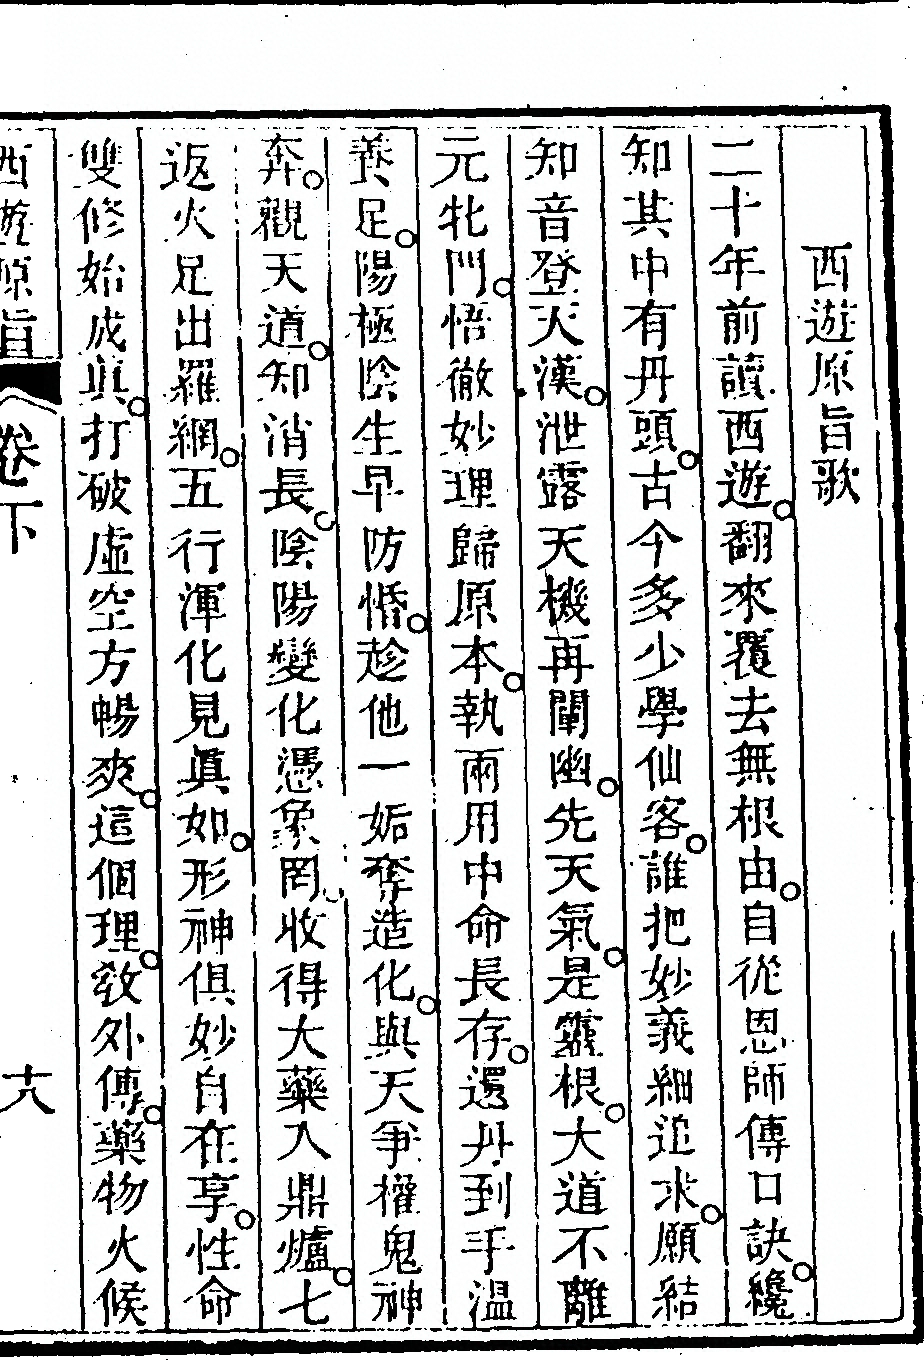 西遊原旨歌
二十年前讀西遊。翻來覆去無根由。自從恩師傳口訣。纔
知其中有丹頭。古今多少學仙客。誰把妙義細追求。願結
知音登天漢。泄露天機再闡幽。先天氣。是靈根。大道不離
元牝門。悟徹妙理歸原本。執兩用中命長存。還丹到手溫
養足。陽極陰生早防惛。趁他一姤奪造化。與天爭權鬼神
奔。觀天道。知消長。陰陽變化憑象罔。收得大藥入鼎爐。七
返火足出羅網。五行渾化見眞如。形神俱妙自在享。性命
雙修始成眞。打破虛空方暢爽。這個理。教外傳。藥物火候
西遊原旨 卷下 十八